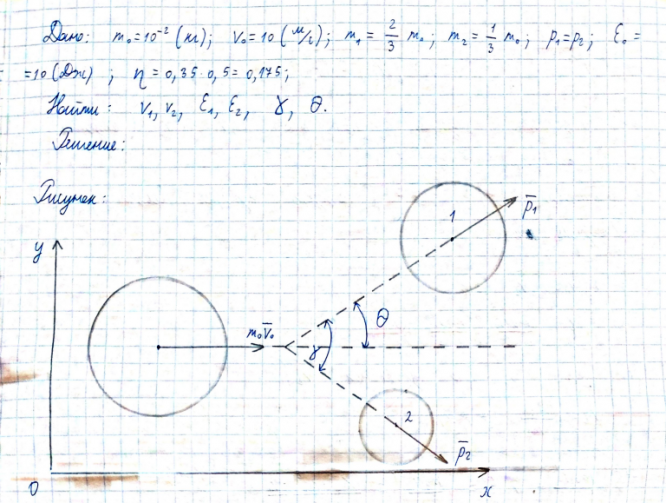 Дано: m₀=10⁻² (кг); V₀=10 (м/с); m₁ = 2/3 m₀; m₂ = 1/3 m₀; p₁=p₂; Ɛ₀ =
=10 (Дж); η = 0,35·0,5=0,175;
Найти: V₁, V₂, Ɛ₁, Ɛ₂, γ, θ.
Решение:
Рисунок:
1
p̄₁
y
θ
m₀V̄₀
γ
2
p̄₂
0
x